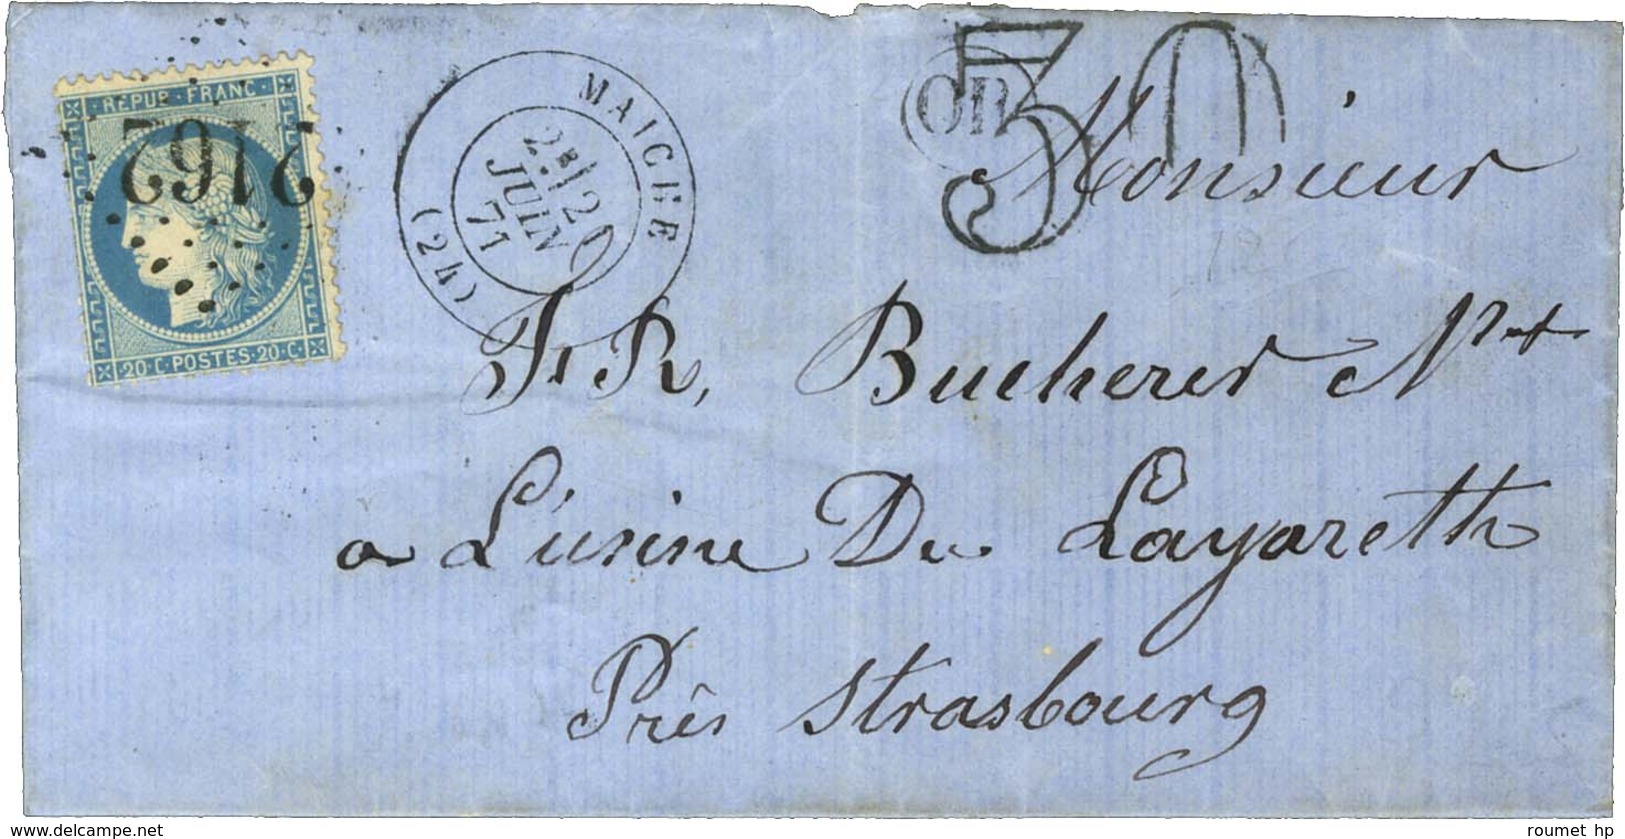 REPUB · FRANC ·
2162
· 20 · C · POSTES · 20 · C ·
MAICHE
2E/20
JUIN
71
(24)
OR
30
Monsieur
Js R, Bucherer Nt
a L'usine Du Layareth
Près Strasbourg
www.delcampe.net
roumet hp